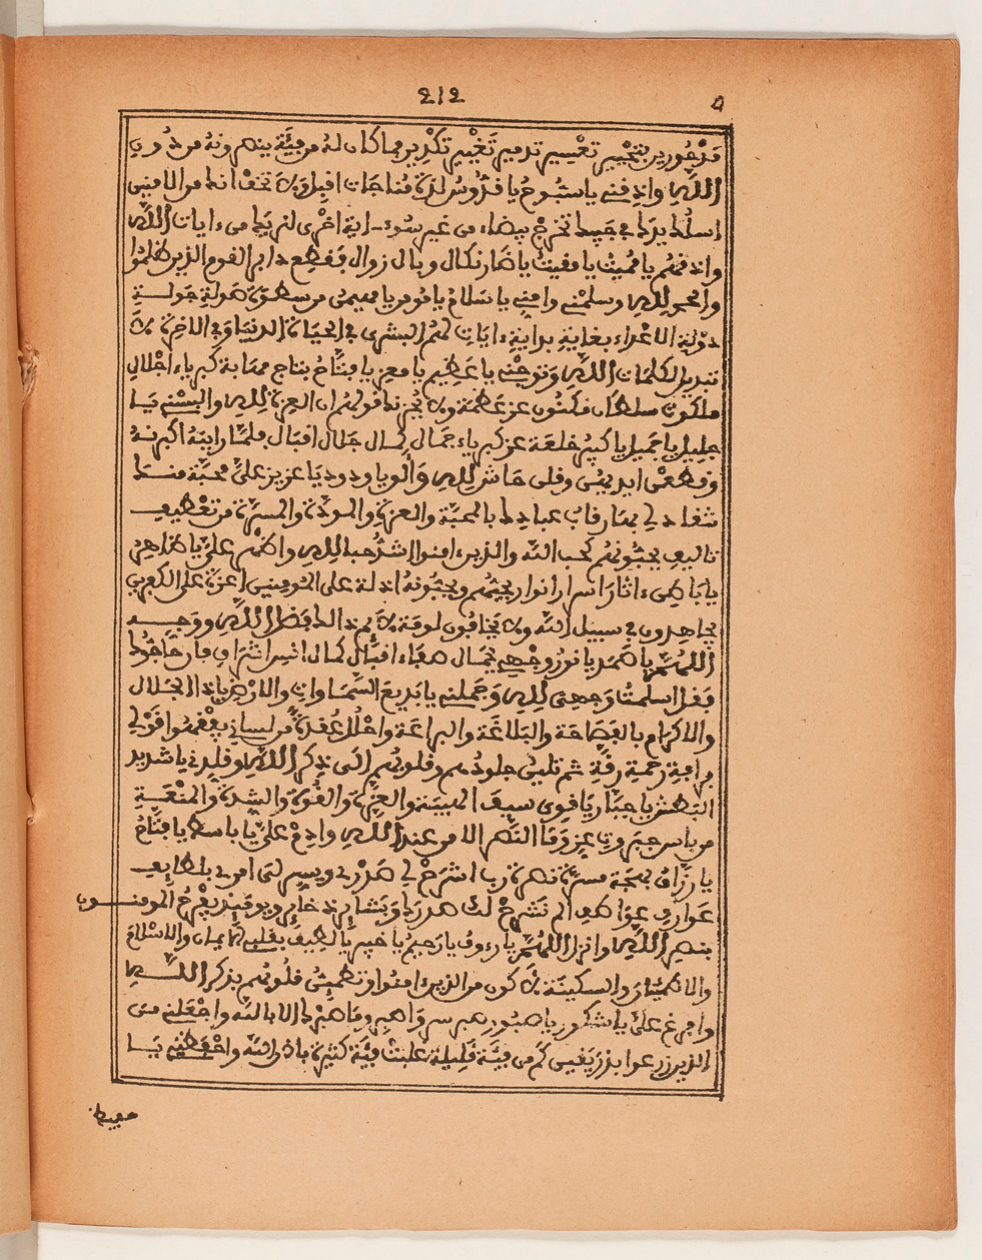 ٢١٢
مدحور بتخيير تغيير تدمير تغيير تكدير مما كان له من فئة ينصرونه من دون
الله واذفني ياسبوح يا قدوس لذة مناجات اقبل ولا تخف انك من الامنين
اسلك يدك في جيبك تخرج بيضاء من غير سوء اية اخرى لنريك من ءايات الله
واذقهم يا مميت يا مقيت يا ضار نكال وبال زوال فقطع دابر القوم الذين ظلموا
والحمد لله وسلمني وامني يا سلام يا مومن يا مهيمن من سطوة صولة جولة
دولة الاعداء بغاية بداية ءايات لهم البشرى في الحياة الدنيا وفي الاخرة لا
تبديل لكلمات الله وتوجني يا عظيم يا معز يا فتاح بتاج مهابة كبرياء اجلال
ملكوت سلطان مكنون عز عظمة ولا يحزنك قولهم ان العزة لله والبسني يا
جليل يا جميل يا كبير خلعة عز كبرياء جمال كمال جلال اقبال فلما راينه اكبرنه
وقطعن ايديهن وقلن حاش لله وألق يا ودود يا عزيز علي محبة منك
تنقاد لي بها رقاب عبادك بالمحبة والعزة والمودة والمسرة من تعطيف
تاليف يحبونهم كحب الله والذين ءامنوا اشد حبا لله واظهر علي يا ظاهر
يا باطن ءاثار اسرار انوار يحبهم ويحبونه اذلة على المومنين اعزة على الكفرين
يجاهدون في سبيل الله ولا يخافون لومة لائم ذالك فضل الله ووجه
اللهم يا صمد يا نور وجهي بجمال صفاء اقبال كمال انس اشراق فان حاجوك
فقل اسلمت وجهي لله وجملني يا بديع السماوات والارض يا ذا الجلال
والاكرام بالفصاحة والبلاغة والبراعة واحلل عقدة من لساني يفقهوا قولي
برافة رحمة رقة ثم تلين جلودهم وقلوبهم الى ذكر الله وقلدني يا شديد
البطش يا جبار يا قوي سيف الهيبة والعزة والقوة والشدة والمنعة
من باس جبروت عز وما النصر الا من عند الله وادم علي يا باسط يا فتاح
يا رزاق بهجة مسرة نصرة رب اشرح لي صدري ويسر لي امري بلطائف
عوارف عواطف الم نشرح لك صدرك وبشاير ذخاير ويومئذ يفرح المومنون
بنصر الله وانزل اللهم يا رءوف يا رحيم يا خبير يا لطيف بقلبي الايمان والاسلام
والاطمينان والسكينة لأكون من الذين ءامنوا وتطمئن قلوبهم بذكر الله
وافرغ علي يا شكور يا صبور صبر سر واصبر وما صبرك الا بالله واجعلني من
الذين زرعوا بذر يقين كم من فئة قليلة غلبت فئة كثيرة باذن الله واحفظني يا
حفيظ